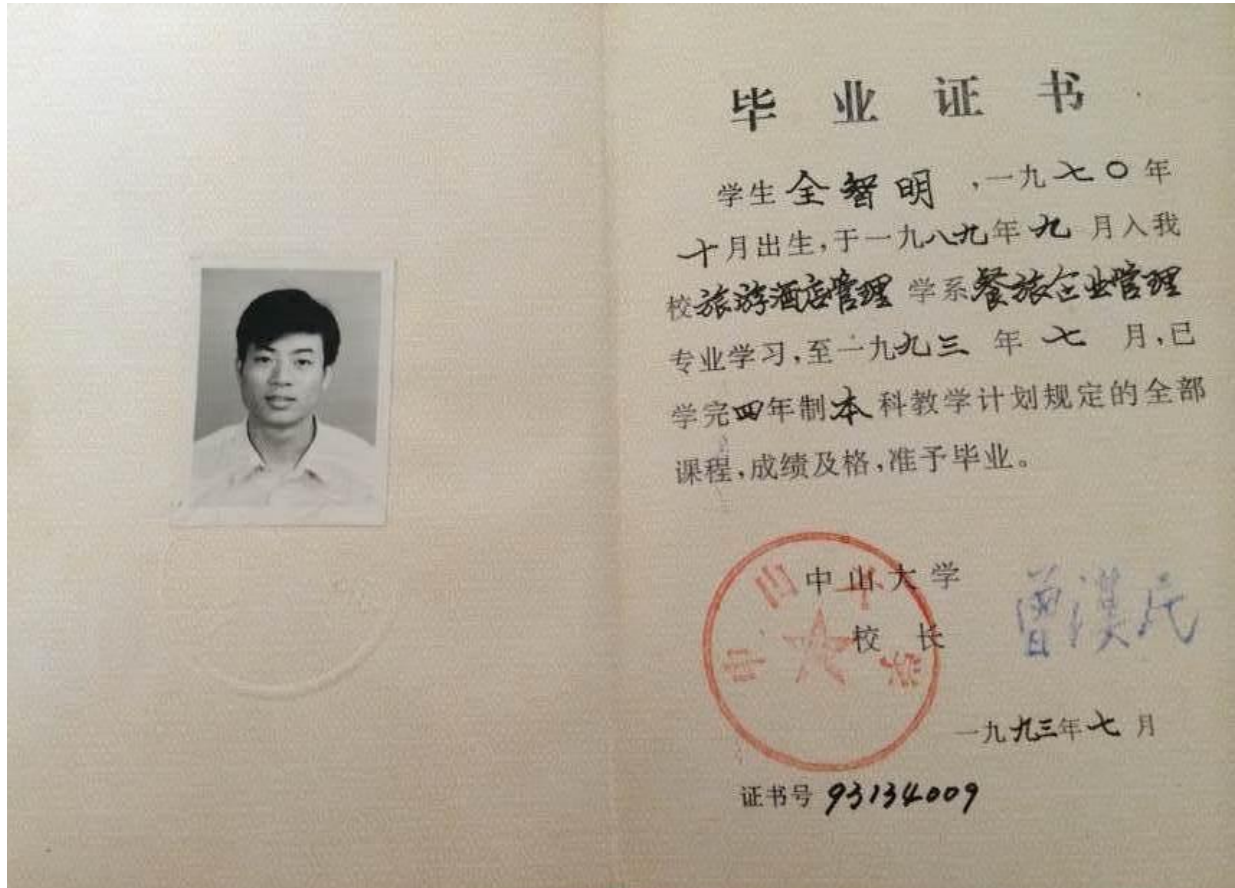 毕业证书
学生全智明,一九七〇年
十月出生,于一九八九年九月入我
校旅游酒店管理学系餐旅企业管理
专业学习,至一九九三年七月,已
学完四年制本科教学计划规定的全部
课程,成绩及格,准予毕业。
中山大学
校长 曾汉民
中山大学
一九九三年七月
证书号 93134009